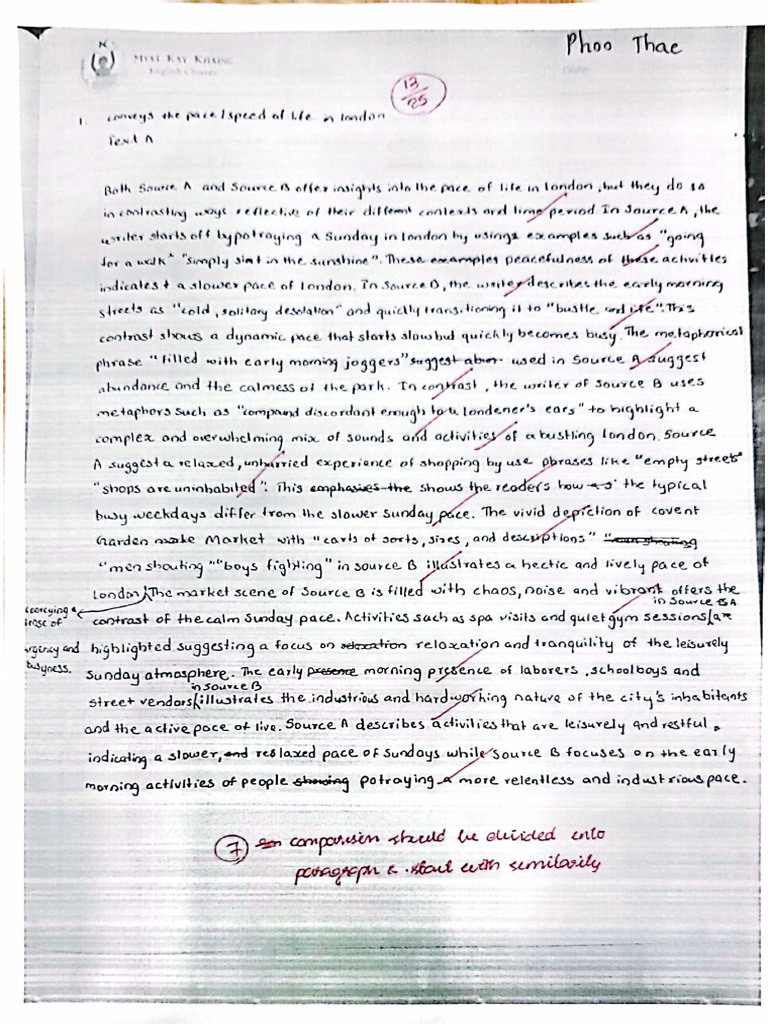 Phoo Thae
MYAT KAY KHAING
English Classes
13/25
1. conveys the pace/speed of life in london
Text A
Both Source A and Source B offer insights into the pace of life in london, but they do so
in contrasting ways reflective of their different contexts and time period. In Source A, the
writer starts off by potraying a Sunday in london by using examples such as "going
for a walk" "simply sit in the sunshine". These examples peacefulness of these activities
indicates a slower pace of london. In Source B, the writer describes the early morning
streets as "cold, solitary desolation" and quickly transitioning it to "bustle and life". This
contrast shows a dynamic pace that starts slow but quickly becomes busy. The metaphorical
phrase "filled with early morning joggers" suggest used in Source A suggest
abundance and the calmness of the park. In contrast, the writer of Source B uses
metaphors such as "compound discordant enough to a londener's ears" to highlight a
complex and overwhelming mix of sounds and activities of a bustling london. Source
A suggest a relaxed, unhurried experience of shopping by use phrases like "empty streets"
"shops are uninhabited". This emphasises the shows the readers how the typical
busy weekdays differ from the slower Sunday pace. The vivid depiction of covent
Garden Market with "carts of sorts, sizes, and descriptions" "men shouting
"men shouting" "boys fighting" in source B illustrates a hectic and lively pace of
london, conveying a sense of urgency and busyness. The market scene of Source B is filled with chaos, noise and vibrant offers the
contrast of the calm Sunday pace. Activities such as spa visits and quiet gym sessions in Source A are
highlighted suggesting a focus on relaxation relaxation and tranquility of the leisurely
Sunday atmosphere. The early presence morning presence of laborers, schoolboys and
street vendors in source B illustrates the industrious and hardworking nature of the city's inhabitants
and the active pace of live. Source A describes activities that are leisurely and restful,
indicating a slower, and reslaxed pace of Sundays while Source B focuses on the early
morning activities of people showing potraying a more relentless and industrious pace.
7 comparison should be divided into
paragraph & start with similarity